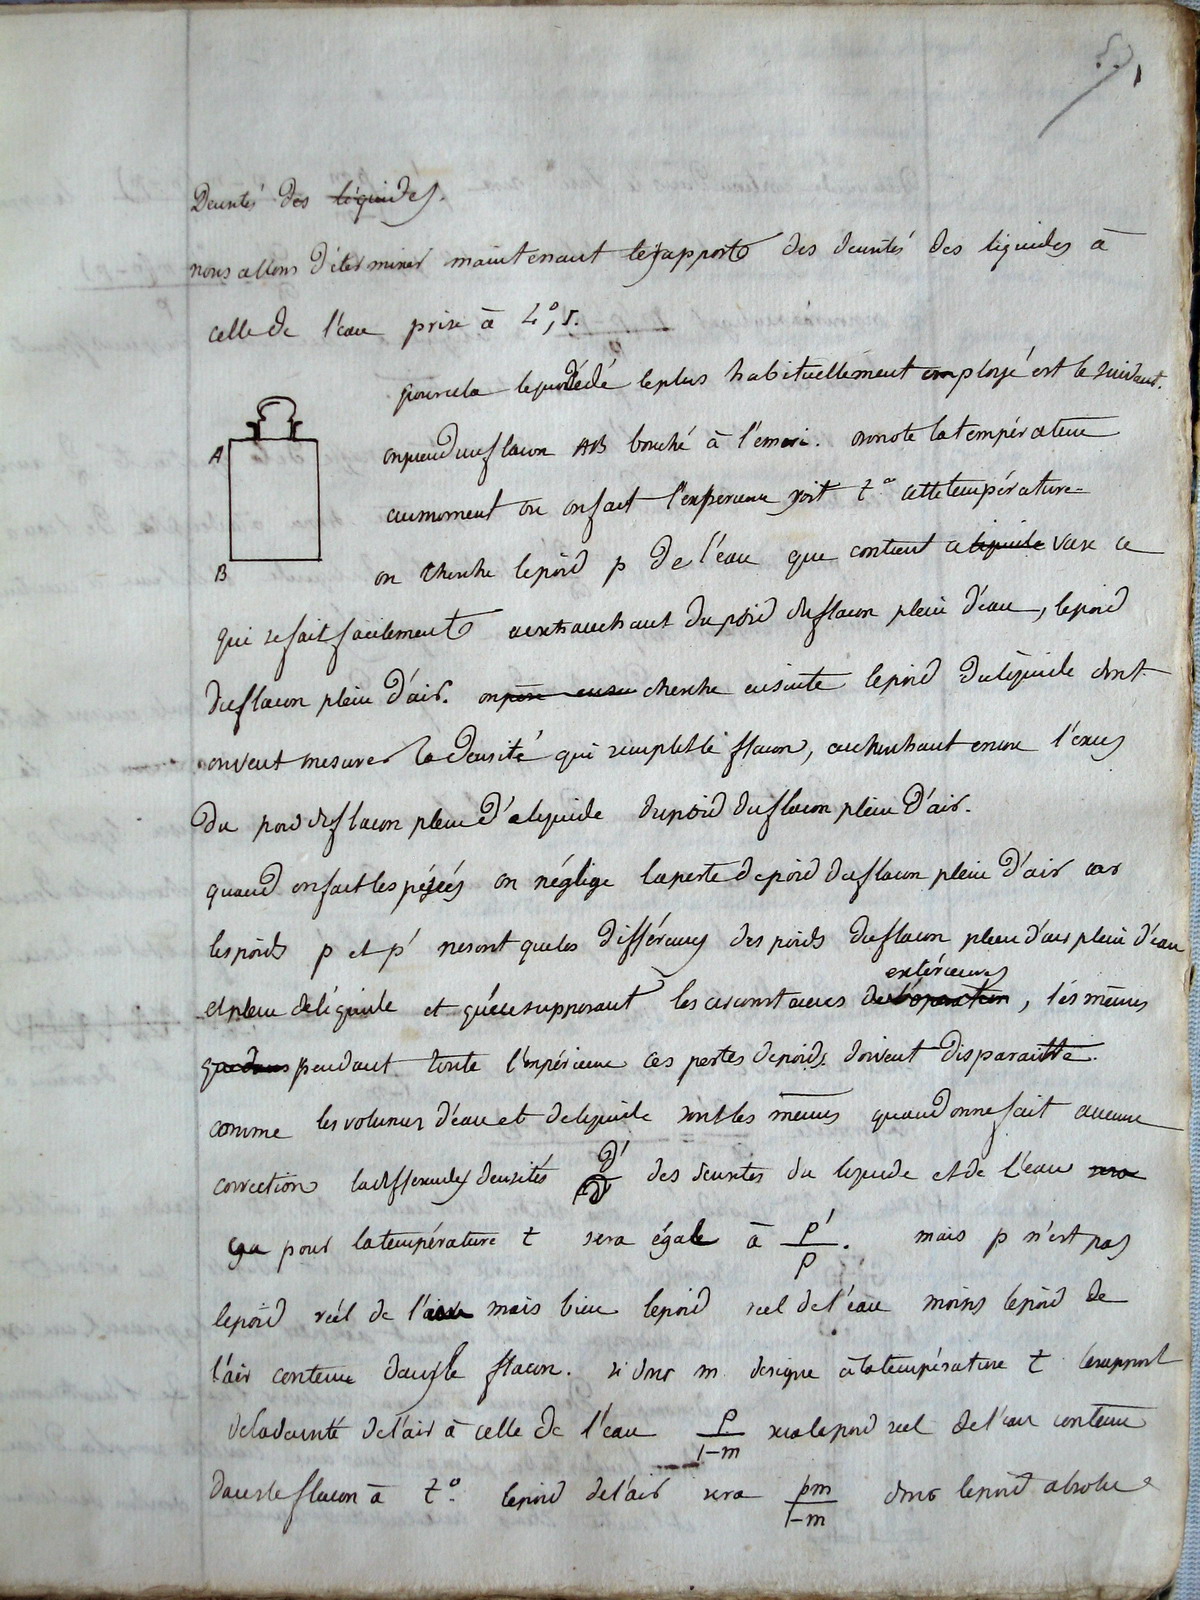 Densités des liquides.
nous allons déterminer maintenant les rapports des densités des liquides à
celle de l'eau prise à 4°,1.
pour cela le procédé le plus habituellement employé est le suivant.
A
on prend un flacon AB bouché à l'emeri. on note la température
au moment ou on fait l'experience soit t° cette température
B
on cherche le poid p de l'eau que contient ce liquide vase ce
qui se fait facilement en retranchant du poid du flacon plein d'eau, le poid
du flacon plein d'air. on cherche ensuite le poid du liquide dont
on veut mesurer la densité qui remplit le flacon, en cherchant encore l'exces
du poid du flacon plein de liquide du poid du flacon plein d'air.
quand on fait les pésées on néglige la perte de poid du flacon plein d'air car
les poids p et p' ne sont que les différences des poids du flacon plein d'air plein d'eau
extérieures
et plein de liquide et qu'en supposant les circonstances de l'opération, les mêmes
pendant toute l'expérience ces pertes de poids doivent disparaitre.
comme les volumes d'eau et de liquide sont les mêmes quand on ne fait aucune
correction la différence densités D'/D des densités du liquide et de l'eau sera
pour la température t sera égale à p'/p. mais p n'est pas
le poid réel de l'eau mais bien le poid reel de l'eau moins le poid de
l'air contenu dans le flacon. si donc m designe à la température t le rapport
de la densité de l'air à celle de l'eau p/1-m sera le poid reel de l'eau contenue
dans le flacon à t°. le poid de l'air sera pm/1-m donc le poid absolu